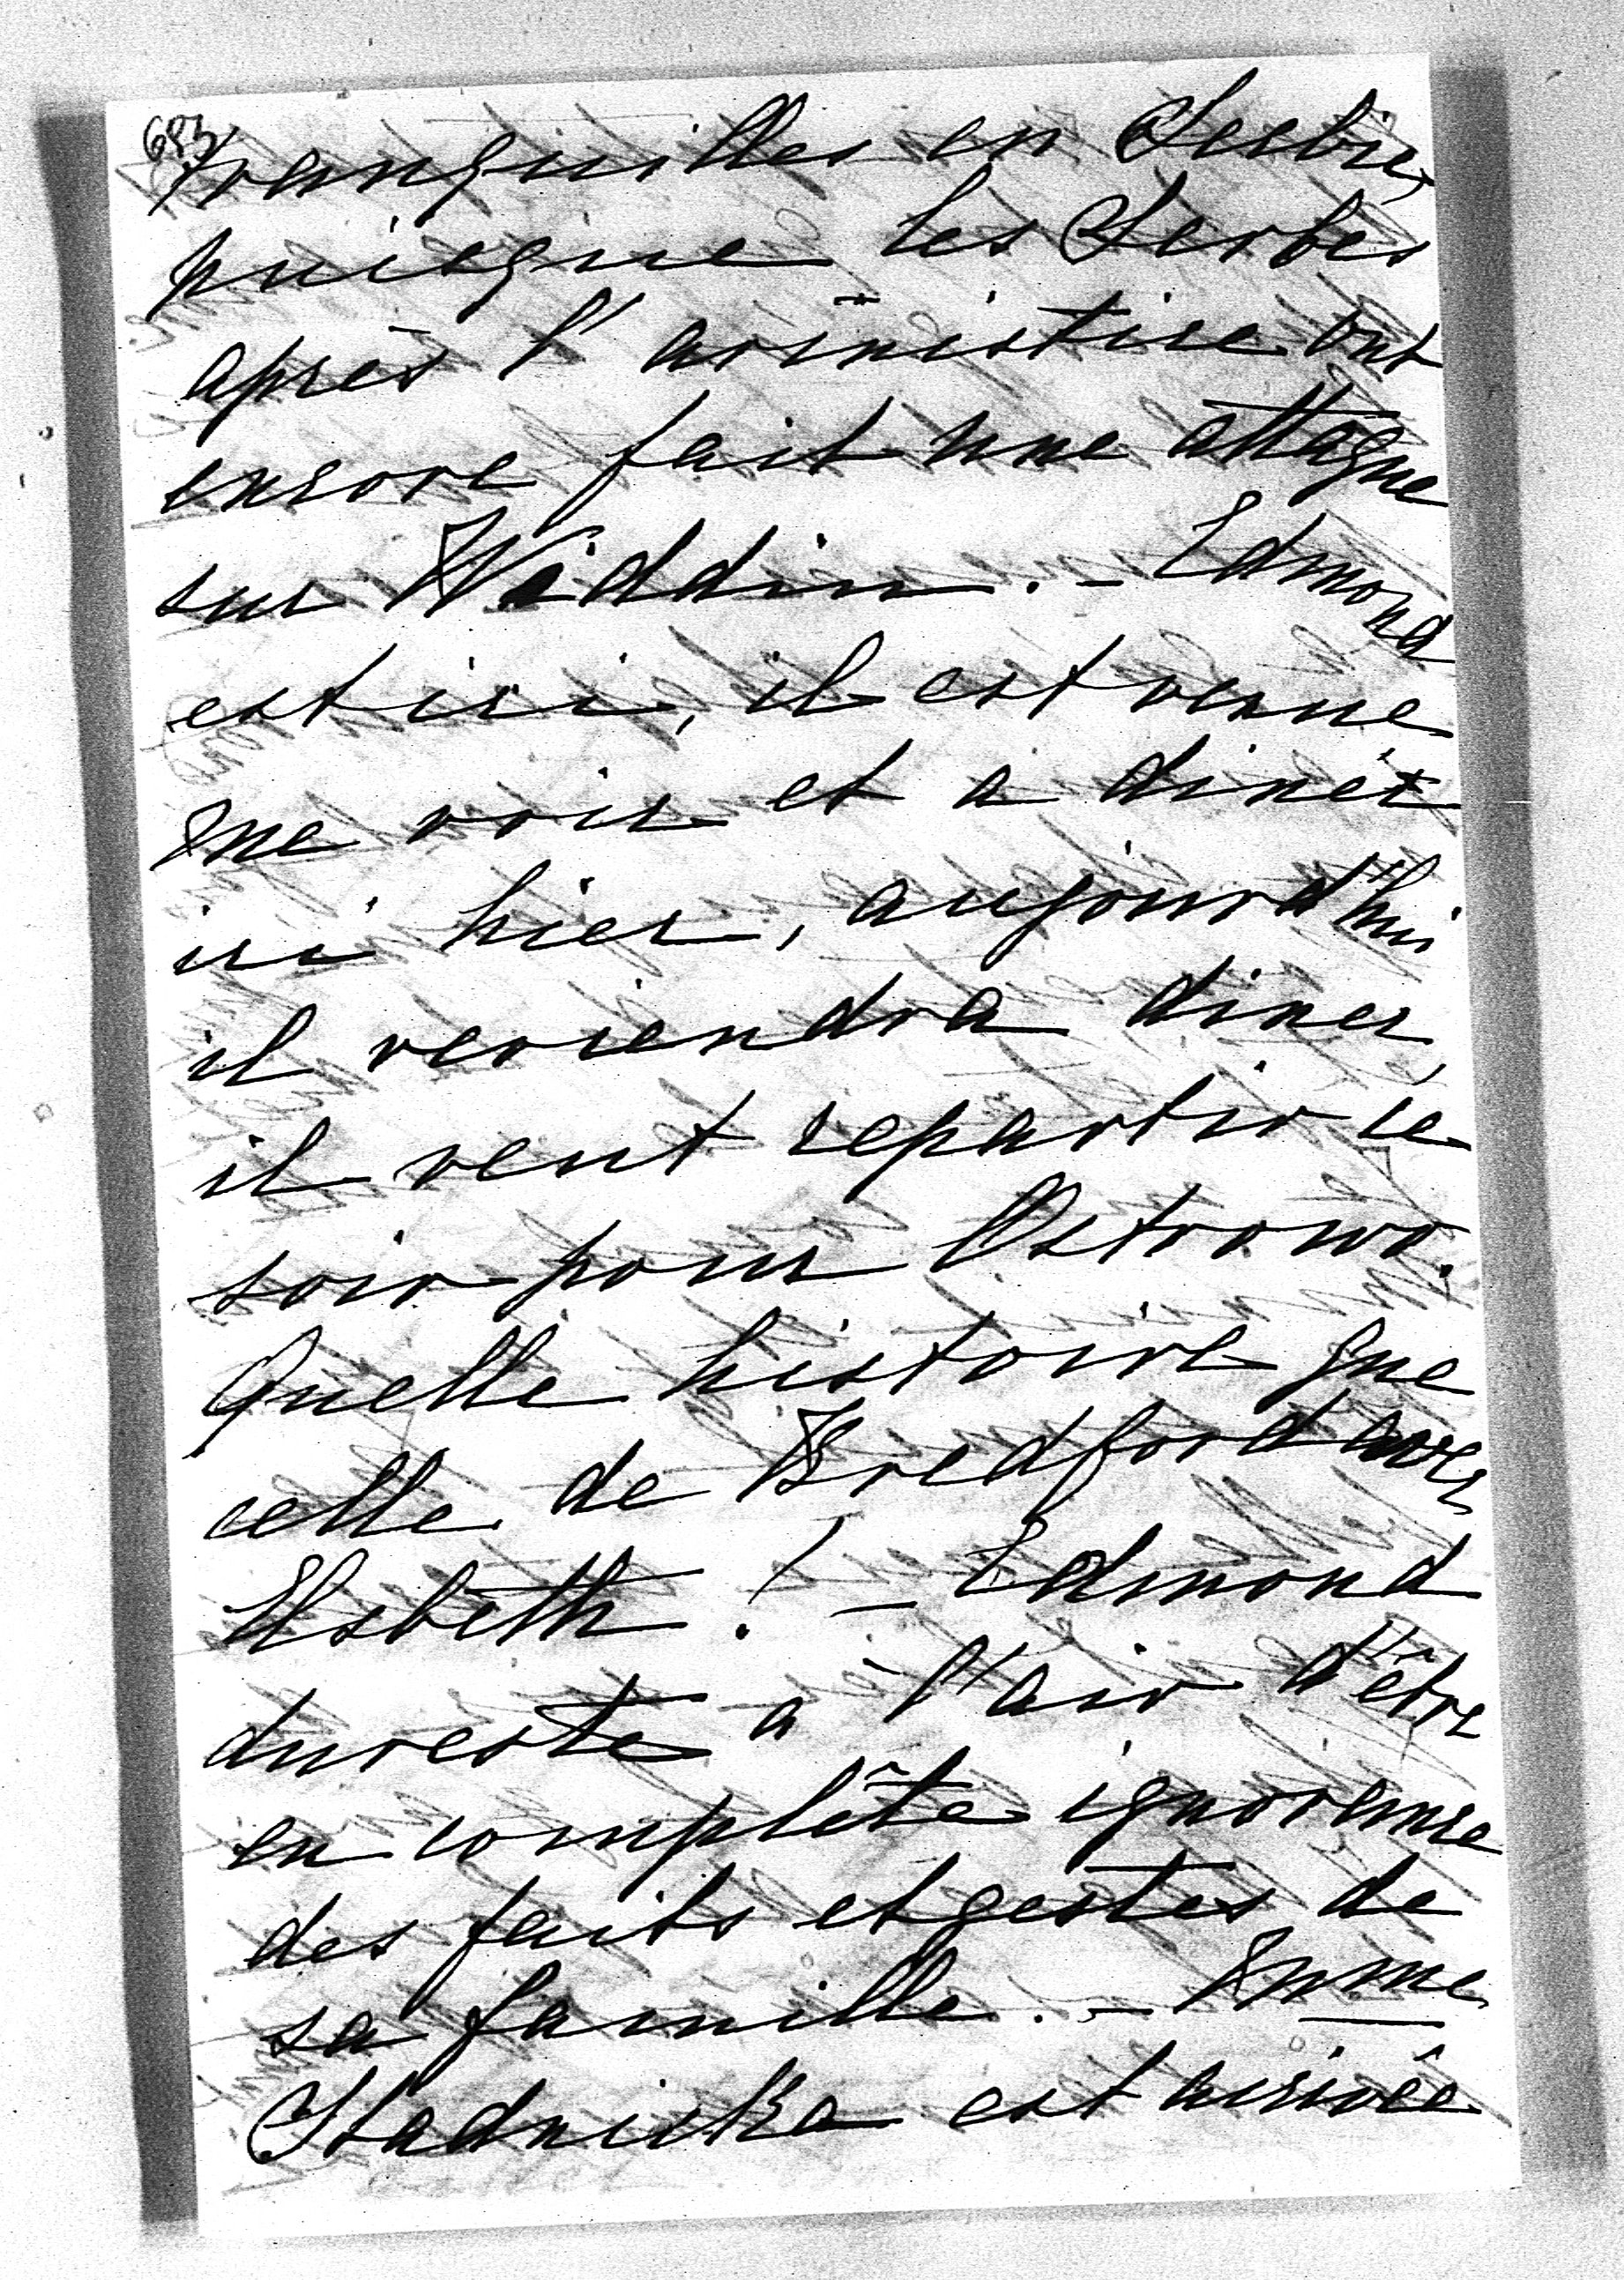 683
tranquilles en Serbie,
puisque les Serbes
après l'armistice ont
encore fait une attaque
sur Widdin. - Edmond
est ici, il est venue
me voir et a diner
ici hier, aujourd'hui
il reviendra diner,
il veut repartir ce
soir pour Ostrowo.
Quelle histoire que
celle de Bredford avec
Elsbeth! - Edmond
dureste a l'air d'être
en complête ignorance
des faits et gestes de
sa famille. - Mme
Stadnicka est arrivée